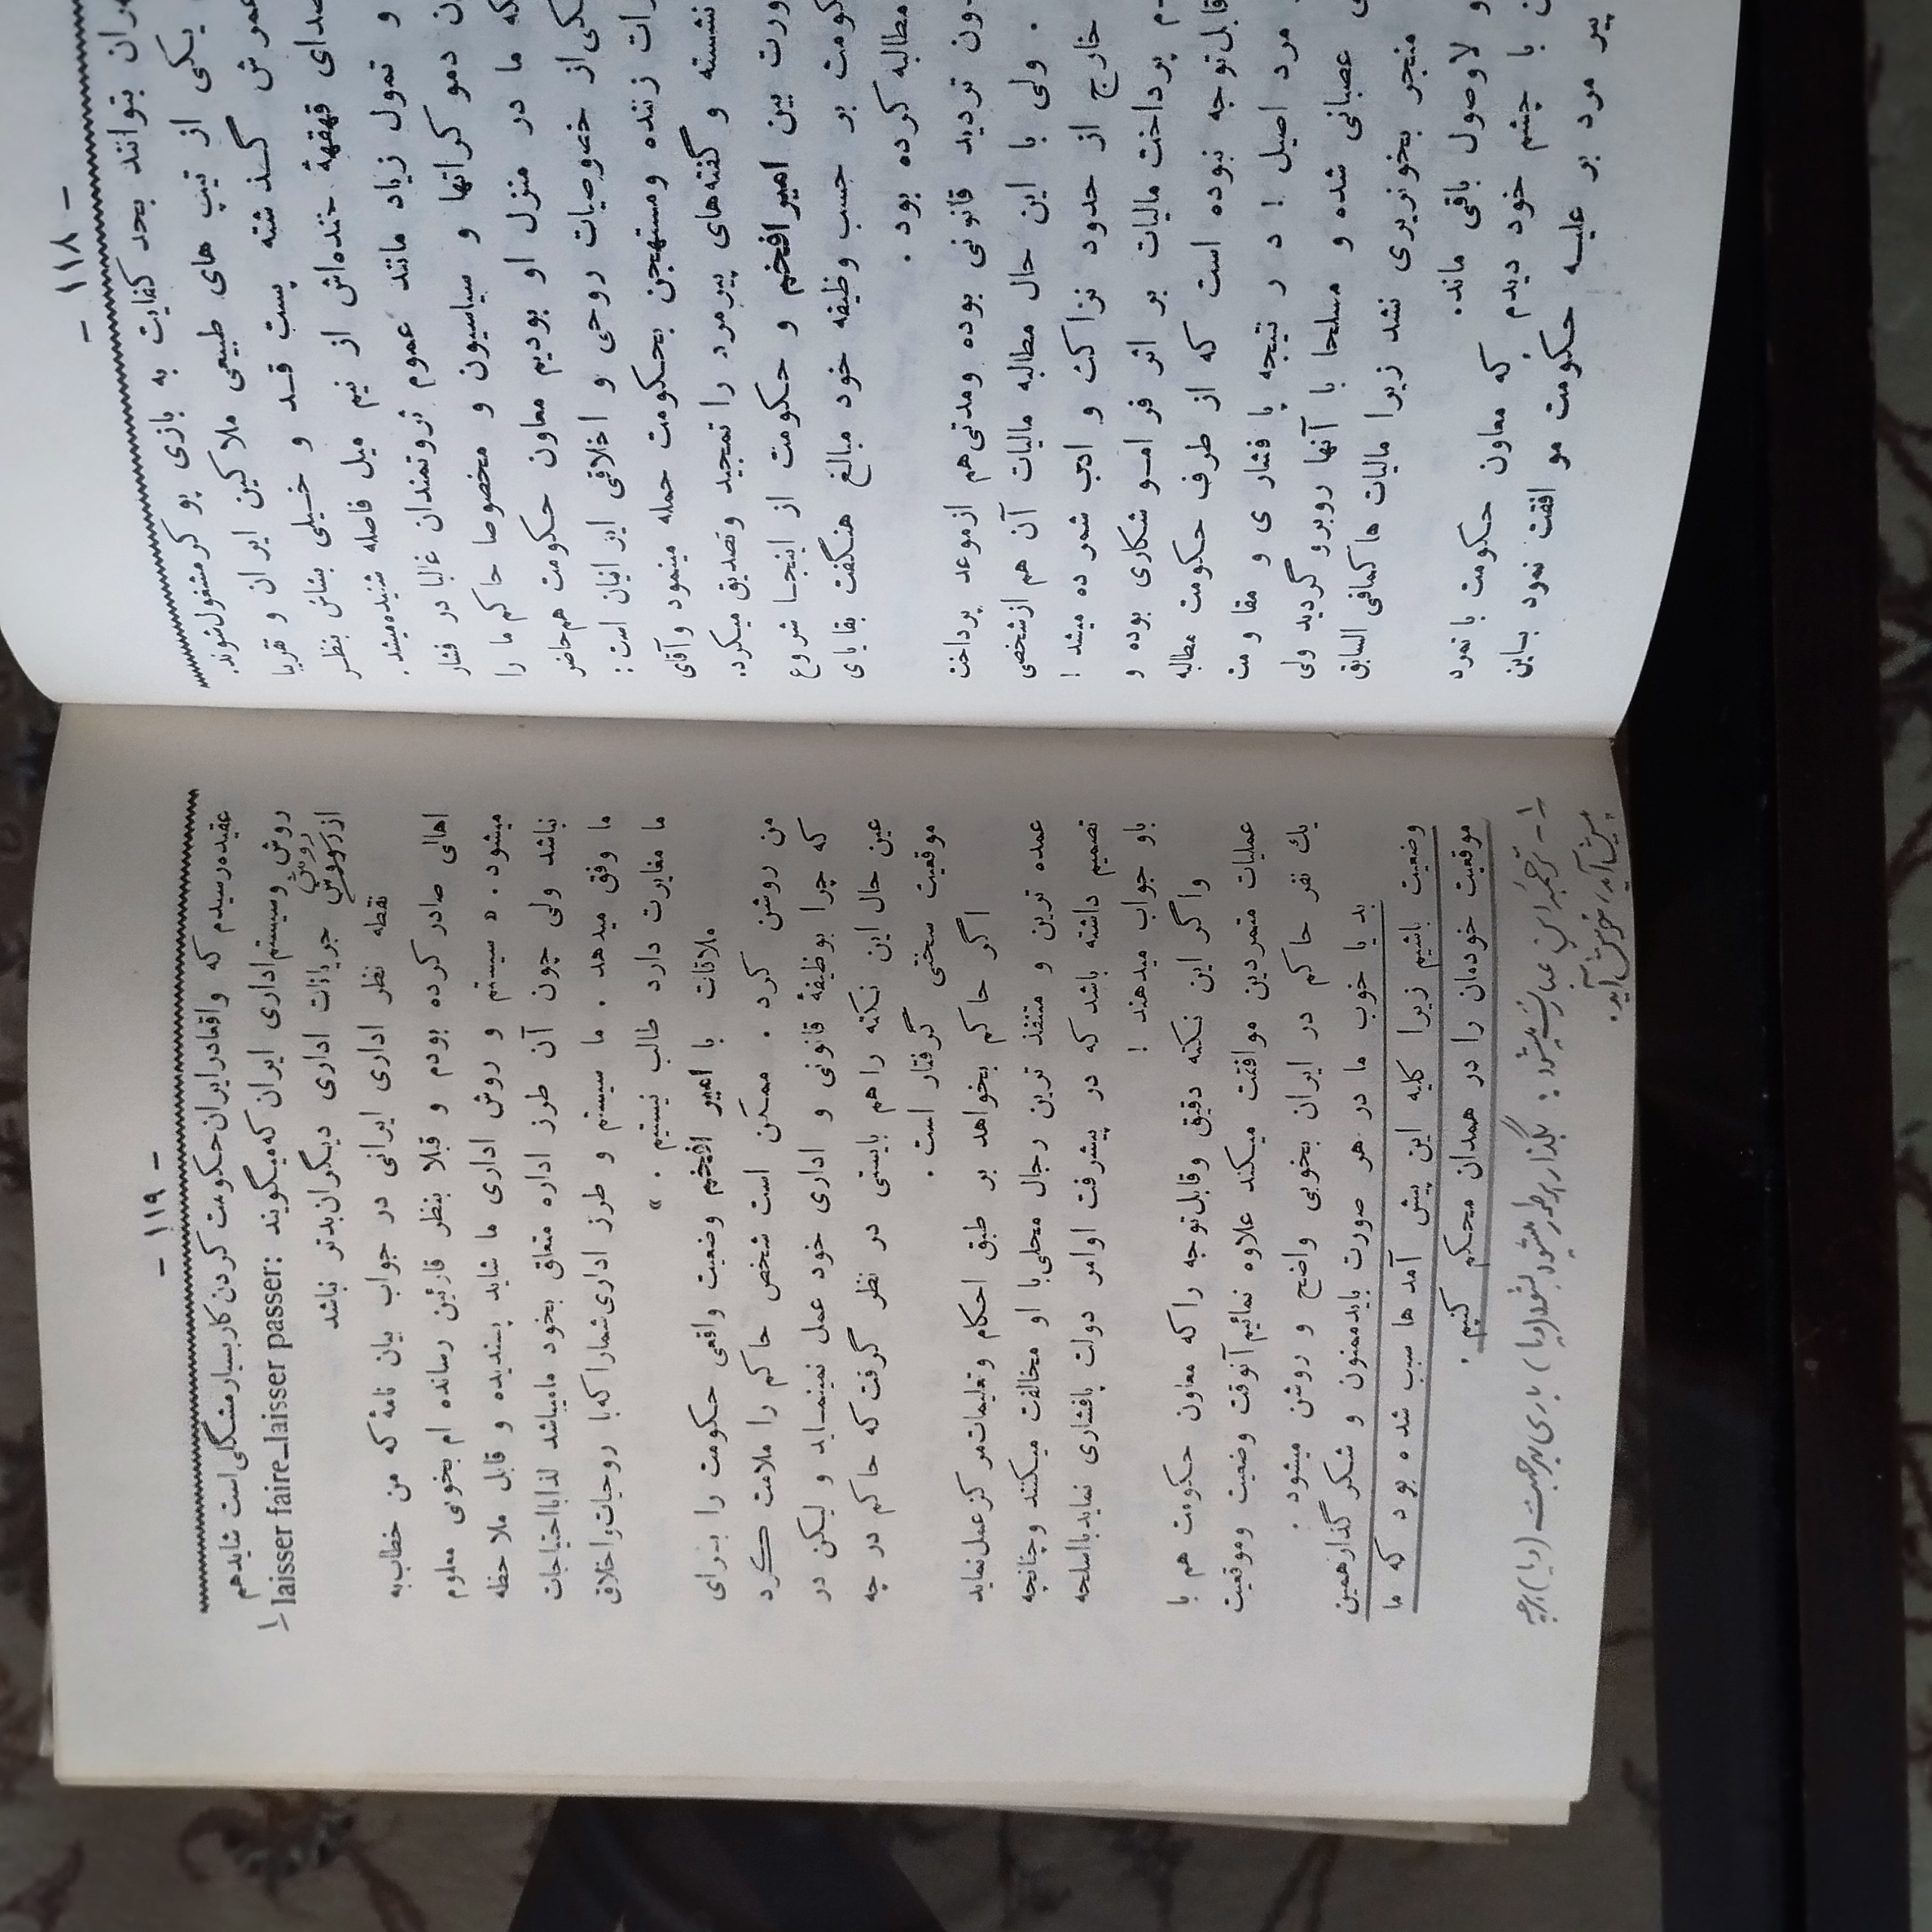 - ۱۱۸ -
بتوانند بحد کفایت به بازی پوکر مشغول شوند.
یکی از تیپ های طبیعی ملاکین ایران و تقریبا
گذشته پست قد و خیلی بشاش بنظر
قهقهۀ خنده‌اش از نیم میل فاصله شنیده میشد.
و تمول زیاد مانند عموم ثروتمندان غالبا در فشار
دموکراتها و سیاسیون و مخصوصا حاکم ما را
که ما در منزل او بودیم معاون حکومت هم حاضر
از خصوصیات روحی و اخلاقی ایرانیان است :
زننده ومستهجن بحکومت حمله مینمود و آقای
نشسته و گفته‌های پیرمرد را تمجید وتصدیق میکرد.
بین امیر افخم و حکومت از اینجا شروع
بر حسب وظیفه خود مبالغ هنگفت بقایای
مطالبه کرده بود .
تردید قانونی بوده ومدتی هم ازموعد پرداخت
. ولی با این حال مطالبه مالیات آن هم ازشخصی
خارج از حدود نزاکت و ادب شمرده میشد !
پرداخت مالیات بر اثر فراموشکاری بوده و
قابل توجه نبوده است که از طرف حکومت مطالبه
مرد اصیل ! در نتیجه پافشاری و مقاومت
عصبانی شده و مسلحا با آنها روبرو گردید ولی
منجر بخونریزی نشد زیرا مالیات هاکمافی السابق
و لاوصول باقی ماند.
با چشم خود دیدم که معاون حکومت بانمرد
پیر مرد بر علیه حکومت موافقت نمود بساین
- ۱۱۹ -
عقیده رسیدم که واقعادرایران‌حکومت کردن کاربسیارمشگلی است شایدهم
روش وسیستم‌اداری ایران که‌میگویند : laisser faire_laisser passer ۱
از روش جریانات اداری دیگران‌بدتر نباشد
نقطه نظر اداری ایرانی در جواب بیان نامۀ که من خطاب‌به
اهالی صادر کرده بودم و قبلا بنظر قارئین رسانده ام بخوبی معلوم
میشود. «سیستم و روش اداری ما شاید پسندیده و قابل ملاحظه
نباشد ولی چون آن طرز اداره متعلق بخود مامیباشد لذابااحتیاجات
ما وفق میدهد . ما سیستم و طرز اداری‌شماراکه‌با روحیات‌واخلاق
ما مغایرت دارد طالب نیستیم . »
ملاقات با امیر افخم وضعیت واقعی حکومت را بدرای
من روشن کرد . ممکن است شخص حاکم را ملامت کرد
که چرا بوظیفۀ قانونی و اداری خود عمل نمینماید و لیکن در
عین حال این نکته راهم بایستی در نظر گرفت که حاکم در چه
موقعیت سختی گرفتار است .
اگر حاکم بخواهد بر طبق احکام وتعلیمات‌مرکزعمل‌نماید
عمده ترین و متنفذ ترین رجال محلی‌با او مخالفت میکنند وچنانچه
تصمیم داشته باشد که در پیشرفت اوامر دولت پافشاری نمایدبااسلحه
باو جواب میدهند !
واگر این نکته دقیق وقابل توجه راکه معاون حکومت هم با
عملیات متمردین موافقت میکند علاوه نمائیم‌آنوقت وضعیت وموقعیت
یك نفر حاکم در ایران بخوبی واضح و روشن میشود .
بد یا خوب ما در هر صورت بایدممنون و شکر گذارهمین
وضعیت باشیم زیرا کلیه این پیش آمد ها سبب شده بود که ما
موقعیت خودمان را در همدان محکم کنیم .
۱- ترجمه این عبارت میشود : بگذار هر طور میشود بشود (و یا) باری بهر جهت (و یا) هرچه
پیش آید، خوش آید.